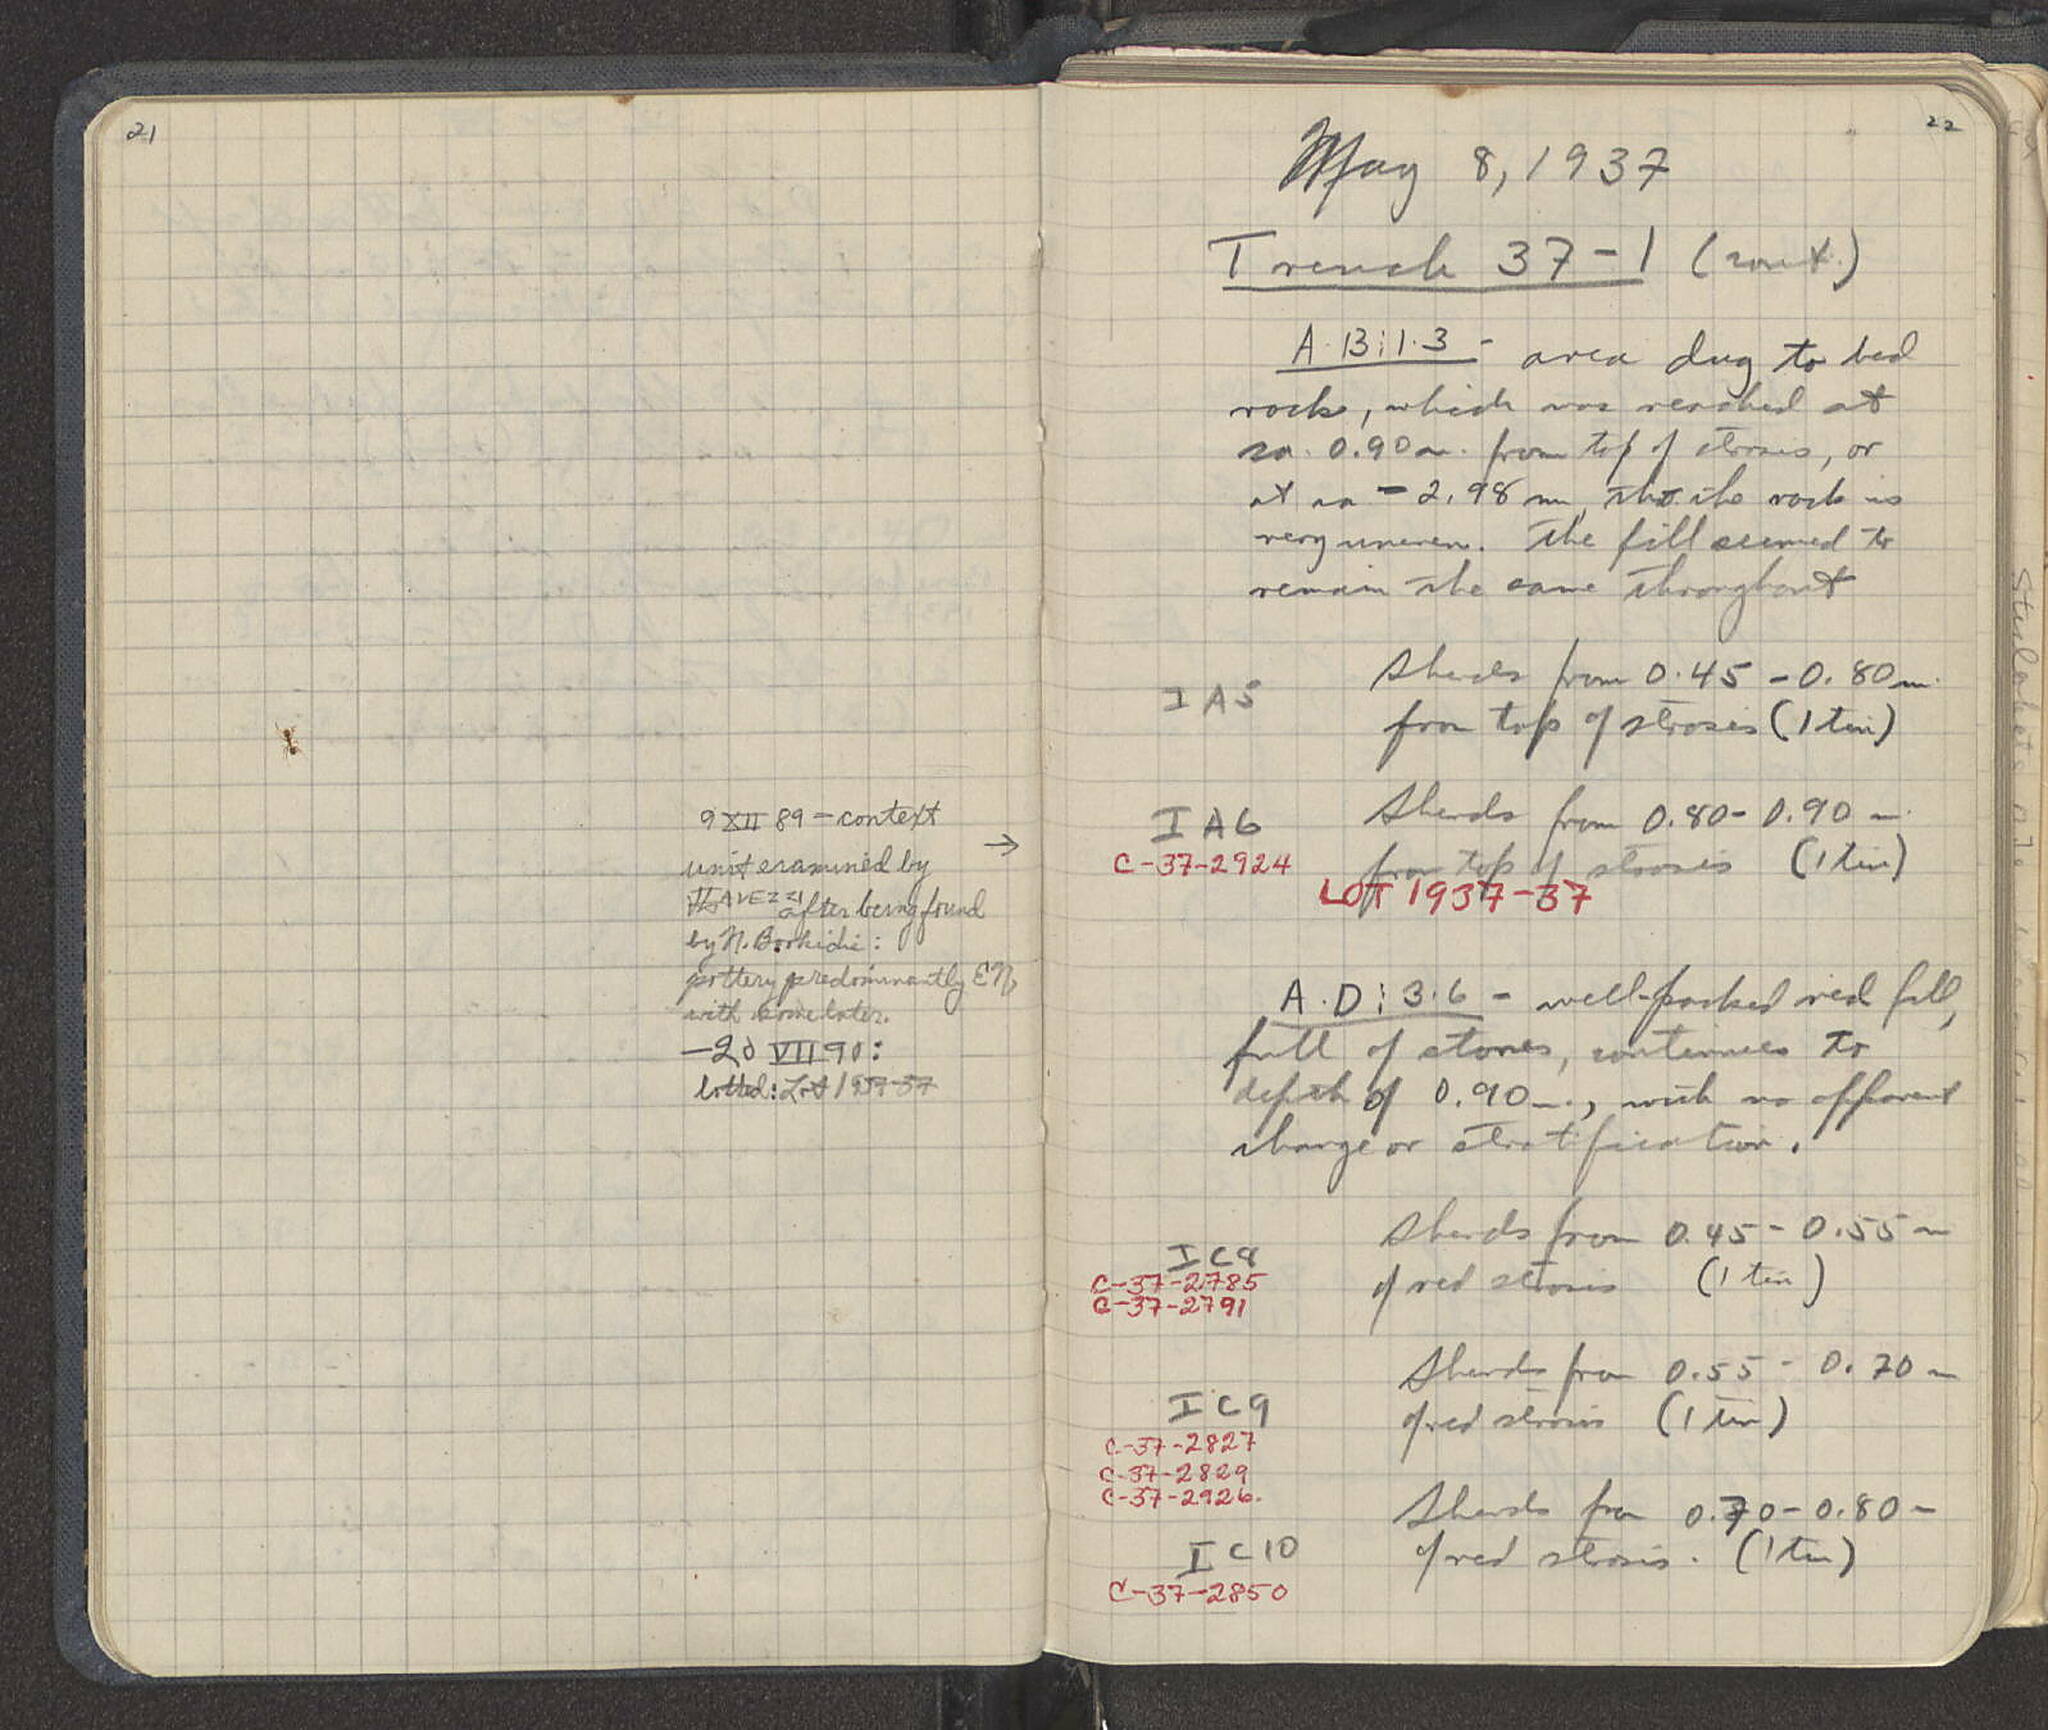 21
9 XII 89 – context
unit examined by
after being found
by N. Bookidis:
pottery predominantly EN,
with some later.
– 20 VII 90:
lotted: Lot 1937-37
→
22
May 8, 1937
Trench 37-1 (cont.)
A-B:1-3 - area dug to bed
rock, which was reached at
ca. 0.90 m. from top of strosis, or
at ca - 2.98 m, tho the rock is
very uneven. The fill seemed to
remain the same throughout
I A5
Sherds from 0.45 - 0.80 m.
from top of strosis (1 tin)
I A6
Sherds from 0.80 - 0.90 m.
C-37-2924
from top of strosis (1 tin)
LOT 1937-37
A-D:3-6 - well-packed red fill,
full of stones, continues to
depth of 0.90 m., with no apparent
change or stratification.
I C8
Sherds from 0.45 - 0.55 m
C-37-2785
of red strosis (1 tin)
C-37-2791
Sherds from 0.55 - 0.70 m
I C9
of red strosis (1 tin)
C-37-2827
C-37-2829
C-37-2926.
Sherds from 0.70 - 0.80 m
I C10
of red strosis. (1 tin)
C-37-2850